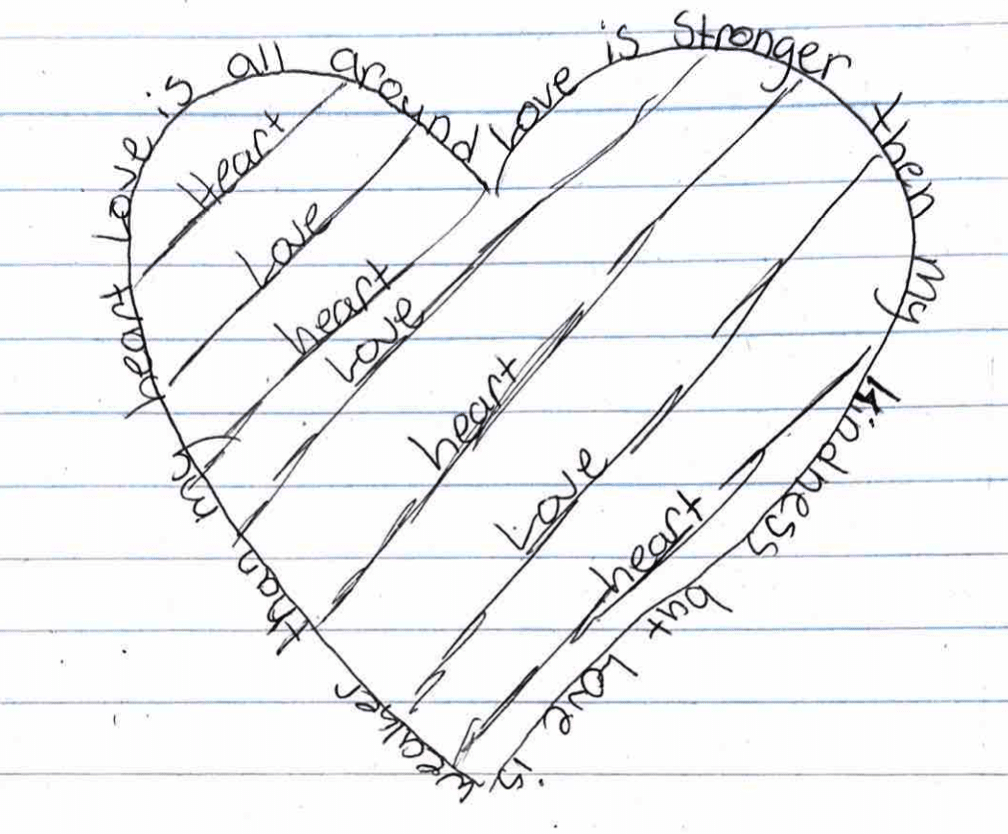 Love is Stronger then My kindness but Love is weaker than my heart Love is all around
Heart
Love
heart
Love
heart
Love
heart